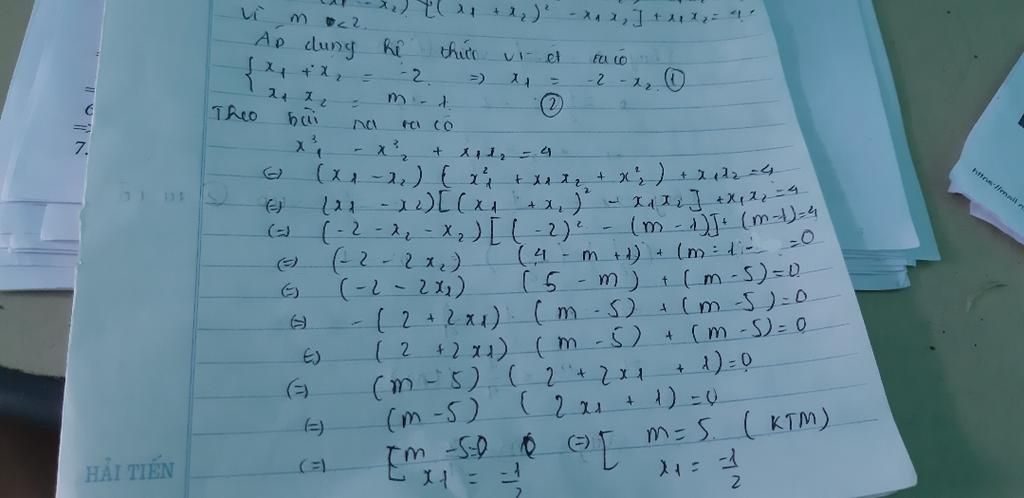 x1 - x2) [(x1 + x2)² - x1x2] + x1x2 = 4.
Vì m < 2.
Áp dụng hệ thức vi-ét ta có
{ x1 + x2 = -2 => x1 = -2 - x2 ①
x1 x2 = m - 1 ②
Theo bài ra ta có
x³1 - x³2 + x1x2 = 4
(=) (x1 - x2) ( x²1 + x1x2 + x²2 ) + x1x2 = 4
(=) (x1 - x2) [(x1 + x2)² - x1x2] + x1x2 = 4
(=) (-2 - x2 - x2) [(-2)² - (m - 1)] + (m - 1) = 4
(=) (-2 - 2x2) (4 - m + 1) + (m - 1 - = 0
(=) (-2 - 2x1) (5 - m) + (m - 5) = 0
(=) -(2 + 2x1) (m - 5) + (m - 5) = 0
(=) (2 + 2x1) (m - 5) + (m - 5) = 0
(=) (m - 5) (2 + 2x1 + 1) = 0
(=) (m - 5) (2x1 + 1) = 0
(=) [ m - 5 = 0 (=) [ m = 5. (KTM)
x1 = -1/2 x1 = -1/2
HẢI TIẾN
6
7.